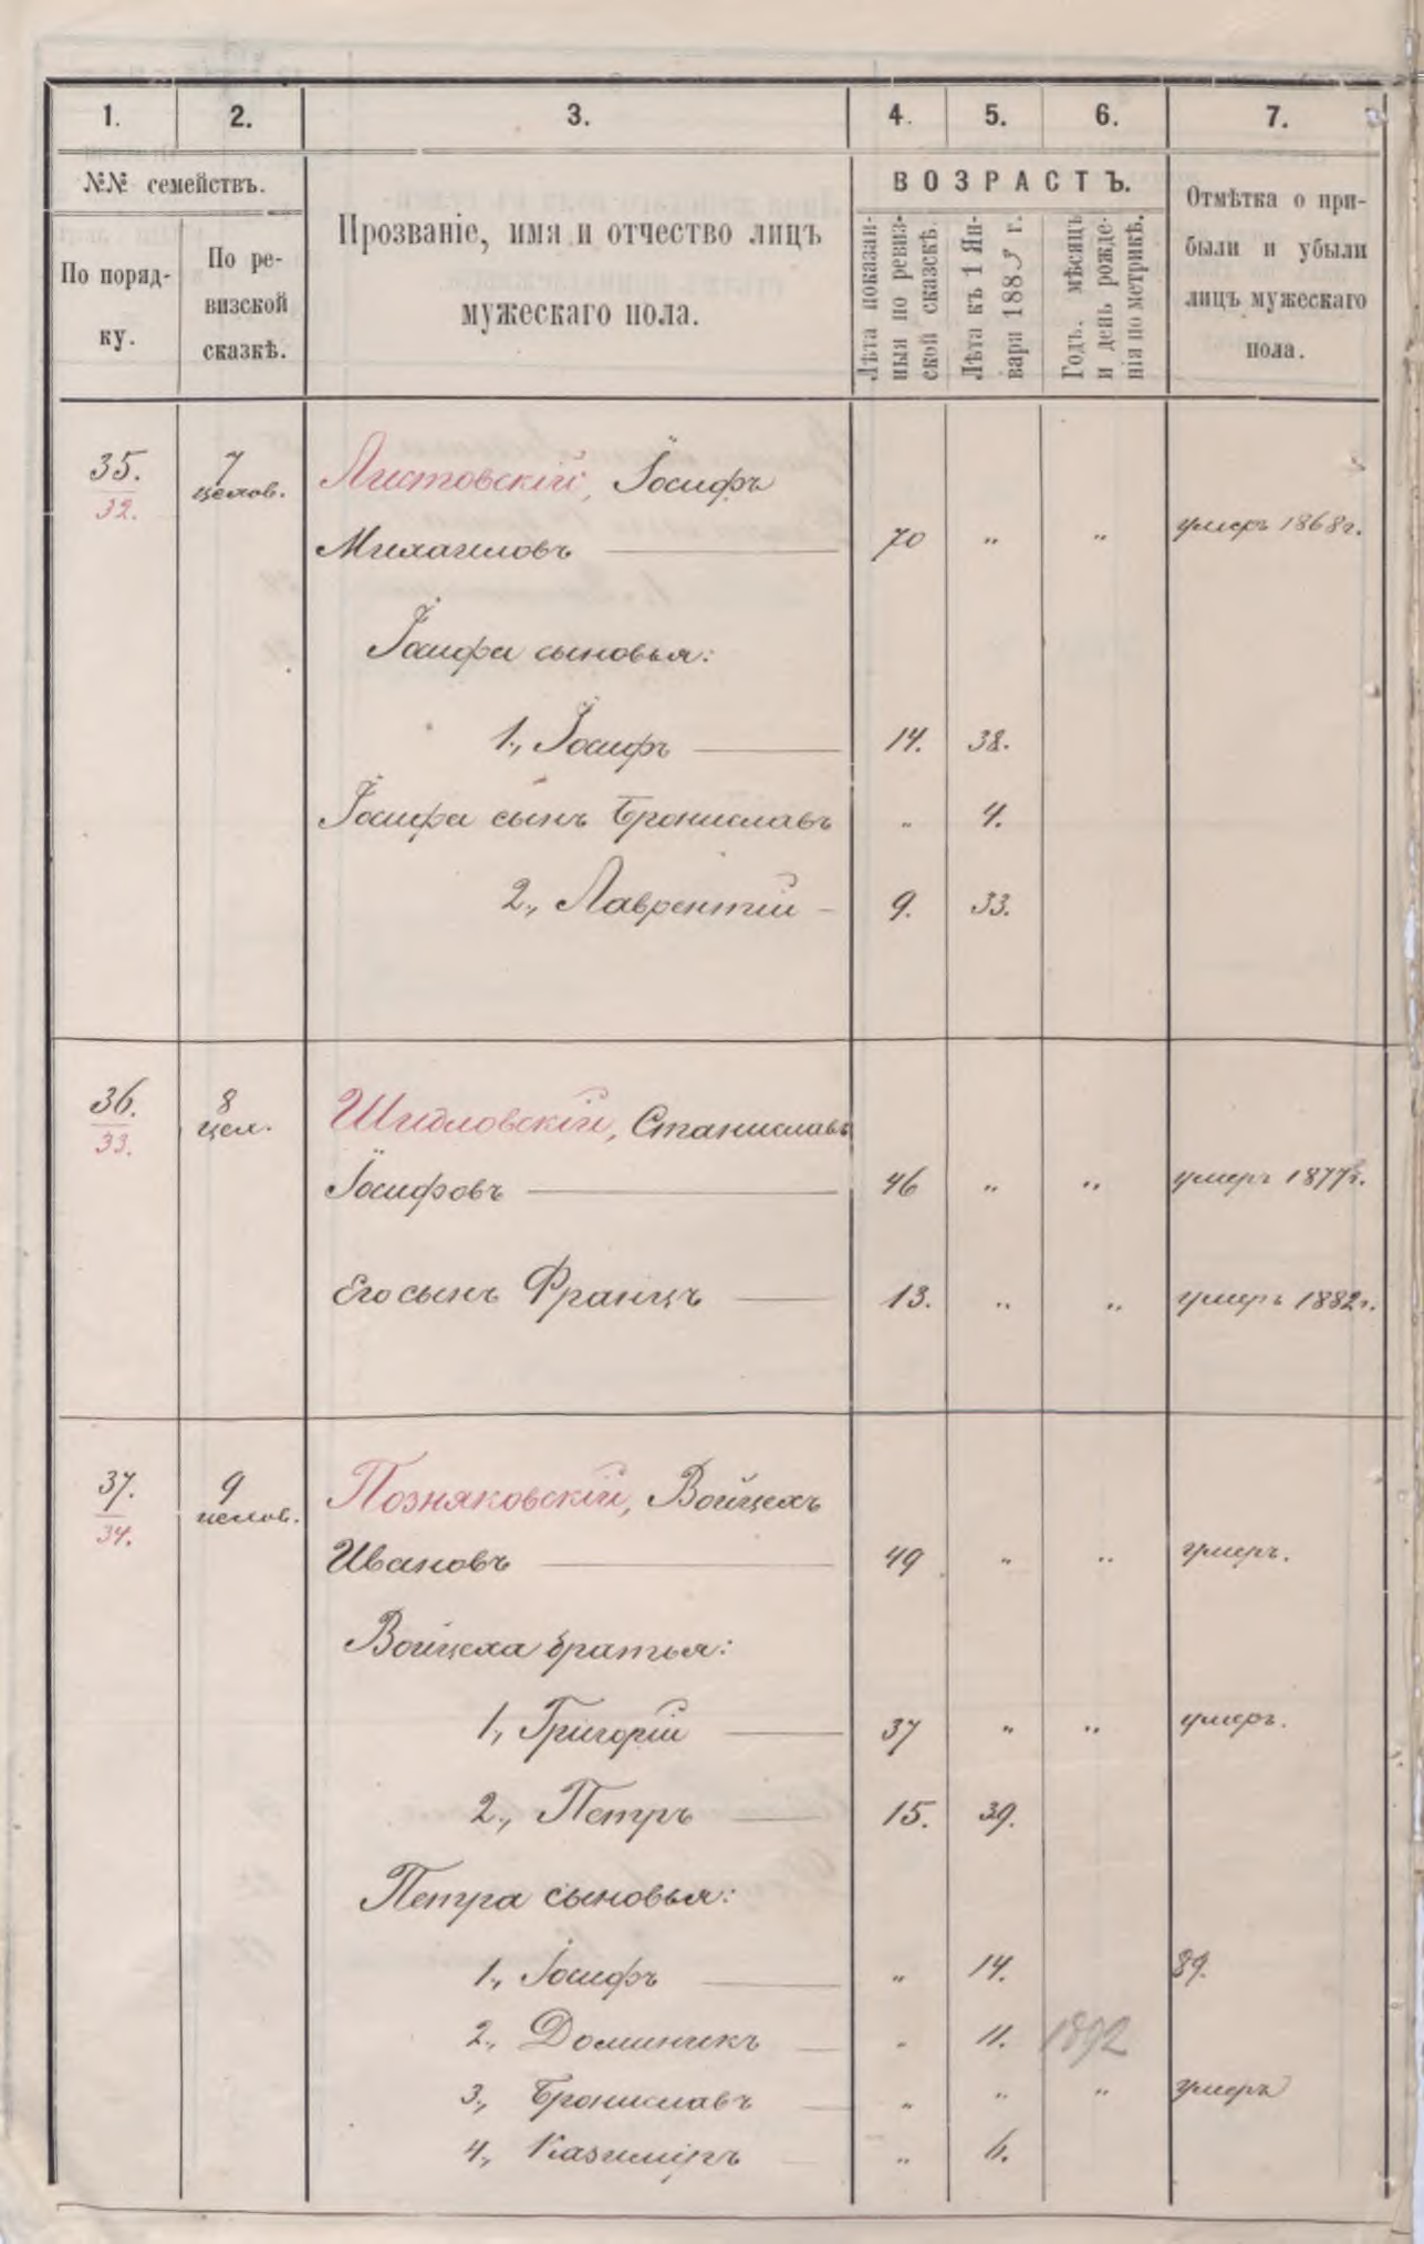 1. 2. 3. 4. 5. 6. 7.
№№ семействъ.
По поряд-
ку.
По ре-
визской
сказкѣ.
Прозваніе, имя и отчество лицъ
мужескаго пола.
ВОЗРАСТЪ.
Лѣта показан-
ныя по ревиз-
ской сказскѣ.
Лѣта къ 1 Ян-
вари 1885 г.
Годъ, мѣсяцъ
и день рожде-
нія по метрикѣ.
Отмѣтка о при-
были и убыли
лицъ мужескаго
пола.
35. 7 Листовскій, Іосифъ
32. челов.
Михаиловъ 70 " " умеръ 1868 г.
Іосифа сыновья:
1., Іосифъ 14. 38.
Іосифа сынъ Брониславъ " 4.
2., Лаврентій 9. 33.
36. 8 Шидловскій, Станиславъ
33. чел.
Іосифовъ 46 " " умеръ 1877 г.
Его сынъ Францъ 13. " " умеръ 1882 г.
37. 9 Позняковскій, Войцехъ
34. челов.
Ивановъ 49 " " умеръ.
Войцеха братья:
1., Григорій 37 " " умеръ.
2., Петръ 15. 39.
Петра сыновья:
1., Іосифъ " 14. 89.
2., Доминикъ " 11. 1892
3., Брониславъ " " " умеръ
4., Казиміръ " 6.